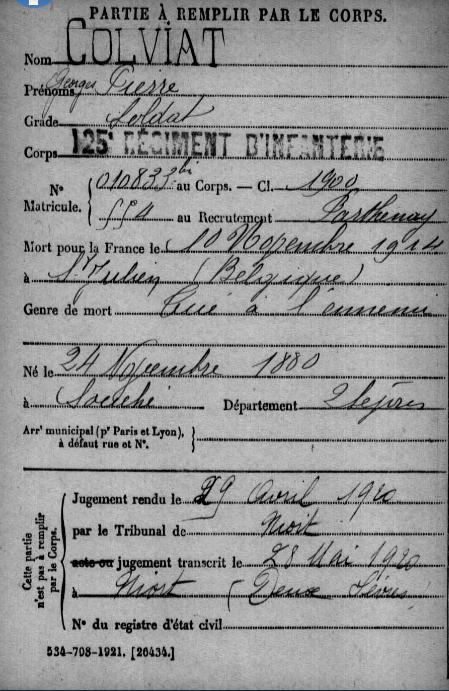 PARTIE À REMPLIR PAR LE CORPS.
Nom COLVIAT
Prénoms Georges Pierre
Grade Soldat
Corps 125e RÉGIMENT D'INFANTERIE
N° Matricule. 010833 bis au Corps. — Cl. 1900
554 au Recrutement Parthenay
Mort pour la France le 10 Novembre 1914
à St Julien (Belgique)
Genre de mort Tué à l'ennemi
Né le 24 Novembre 1880
à Souché Département 2 Sèvres
Arrt municipal (pr Paris et Lyon),
à défaut rue et N°.
Cette partie n'est pas à remplir par le Corps.
Jugement rendu le 29 Avril 1920
par le Tribunal de Niort
acte ou jugement transcrit le 28 Mai 1920
à Niort (Deux Sèvres)
N° du registre d'état civil
534-708-1921. [26434.]